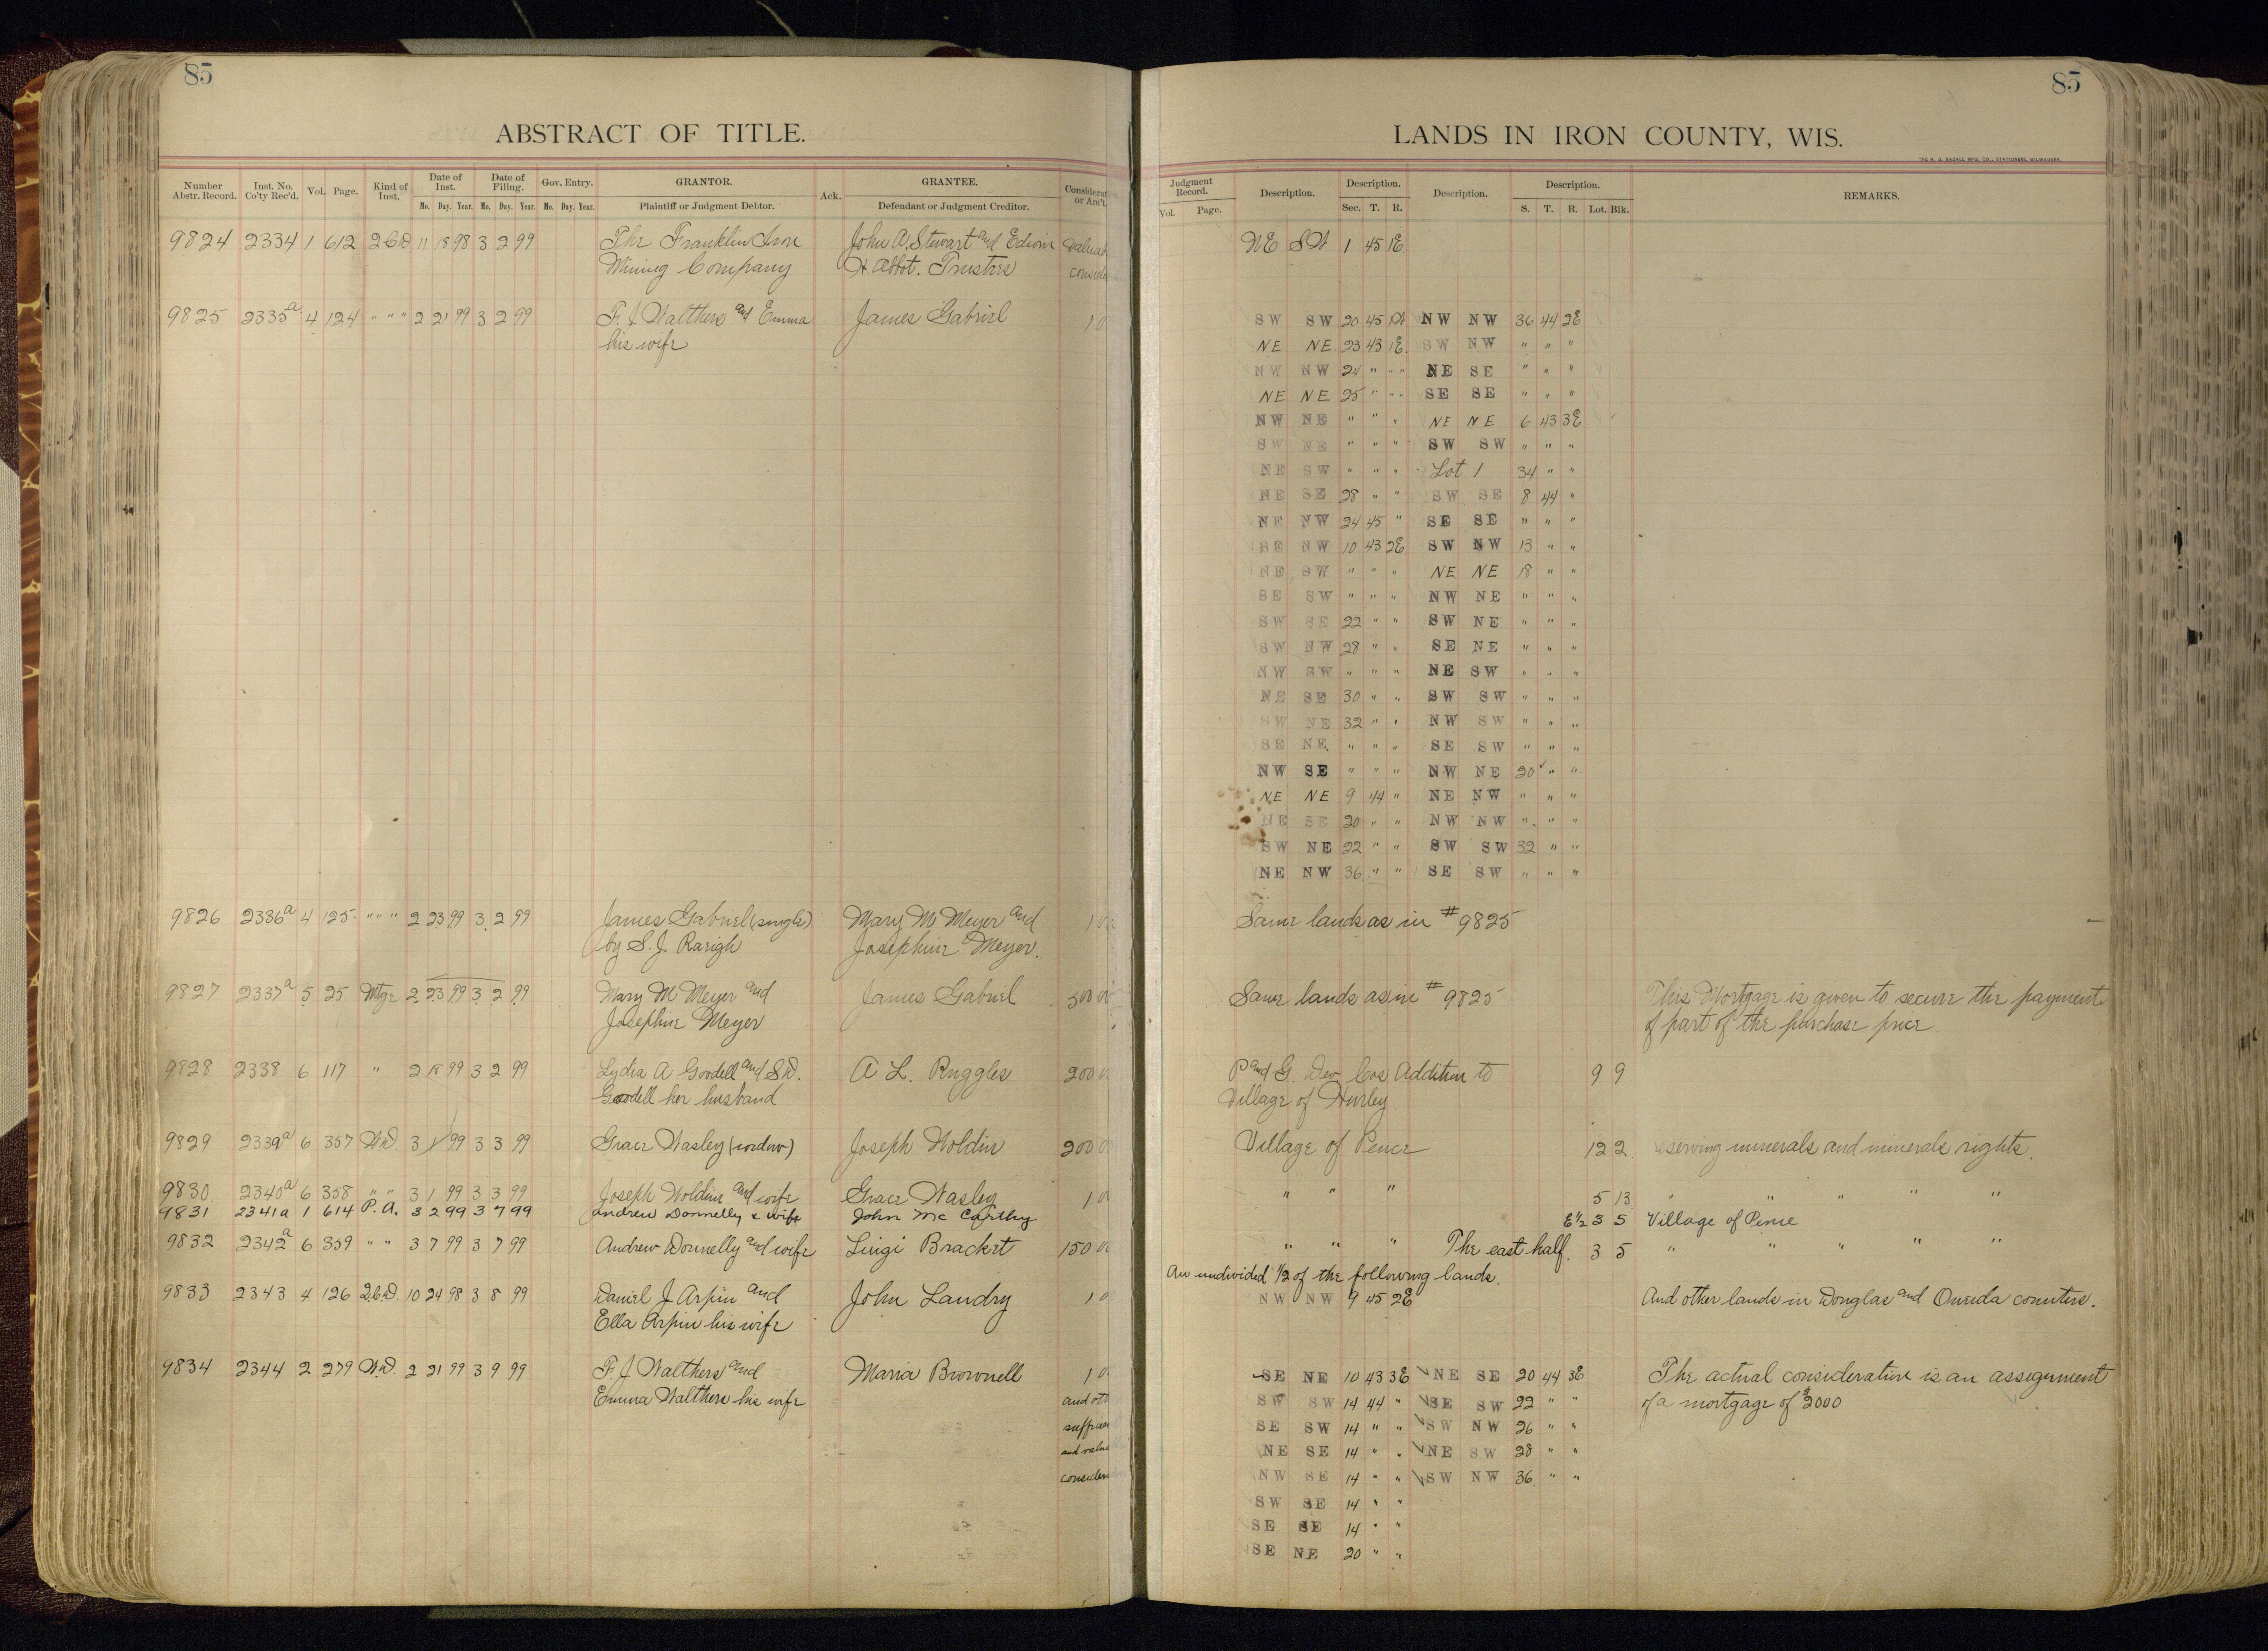 85
ABSTRACT OF TITLE.
Number Abstr. Record. Inst. No. Co'ty Rec'd. Vol. Page. Kind of Inst. Date of Inst. Date of Filing. Gov. Entry. GRANTOR. Ack. GRANTEE. Considerat or Am't.
Mo. Day. Year. Mo. Day. Year. Mo. Day. Year. Plaintiff or Judgment Debtor. Defendant or Judgment Creditor.
9824 2334 1 612 2.C.D. 11 18 98 3 2 99 The Franklin Iron John A. Stewart and Edwin valuab
Mining Company H. Abbot. Trustees conside
9825 2335a 4 124 " " " 2 21 99 3 2 99 F. J. Walthers and Emma James Gabriel 1 0
his wife
9826 2336a 4 125 " " " 2 23 99 3 2 99 James Gabriel (single) Mary M Meyer and 1 0
by S. J. Rarigh Josephine Meyer.
9827 2337a 5 25 Mtge 2 23 99 3 2 99 Mary M Meyer and James Gabriel 500 00
Josephine Meyer
9828 2338 6 117 " 2 18 99 3 2 99 Lydia A Goodell and S.D. A L. Ruggles 200 0
Goodell her husband
9829 2339a 6 357 W.D. 3 1 99 3 3 99 Grace Wasley (widow) Joseph Holdin 200 0
9830 2340a 6 358 " " 3 1 99 3 3 99 Joseph Holdin and wife Grace Wasley 1 0
9831 2341a 1 614 P.A. 3 2 99 3 7 99 Andrew Donnelly & wife John Mc Carthy
9832 2342a 6 359 " " 3 7 99 3 7 99 Andrew Donnelly and wife Luigi Brackett 150 00
9833 2343 4 126 2.C.D. 10 24 98 3 8 99 Daniel J Arpin and John Landry 1 0
Ella Arpin his wife
9834 2344 2 279 W.D. 2 21 99 3 9 99 F. J Walthers and Maria Brownell 1 0
Emma Walthers his wife and oth
sufficien
and valua
consider
85
LANDS IN IRON COUNTY, WIS.
THE H. G. RAZALL MFG. CO., STATIONERS, MILWAUKEE.
Judgment Record. Description. Description. Description. Description. REMARKS.
Vol. Page. Sec. T. R. S. T. R. Lot. Blk.
NE SW 1 45 1E
SW SW 20 45 1W NW NW 36 44 2E
NE NE 23 43 1E. SW NW " " "
NW NW 24 " " " NE SE " " "
NE NE 25 " " " SE SE " " "
NW NE " " " NE NE 6 43 3E
SW NE " " " SW SW " " "
NE SW " " " Lot 1 34 " "
NE SE 28 " " SW SE 8 44 "
NE NW 24 45 " SE SE " " "
SE NW 10 43 2E SW NW 13 " "
NE SW " " " NE NE 18 " "
SE SW " " " NW NE " " "
SW SE 22 " " SW NE " " "
SW NW 28 " " SE NE " " "
NW SW " " " NE SW " " "
NE SE 30 " " SW SW " " "
SW NE 32 " " NW SW " " "
SE NE " " " SE SW " " "
NW SE " " " NW NE 20 " "
NE NE 9 44 " NE NW " " "
NE SE 20 " " NW NW " " "
SW NE 22 " " SW SW 32 " "
NE NW 36 " " SE SW " " "
Same lands as in # 9825
Same lands as in # 9825 This Mortgage is given to secure the payment
of part of the purchase price
P and G. Dev. Cos Addition to 9 9
Village of Hurley
Village of Pence 12 2 reserving minerals and minerals rights.
" " " 5 13 " " " " "
E 1/2 3 5 Village of Pence
" " " The east half. 3 5 " " " " "
An undivided 1/2 of the following lands.
NW NW 9 45 2E And other lands in Douglas and Oneida counties.
SE NE 10 43 3E NE SE 20 44 3E The actual consideration is an assignment
SW SW 14 44 " SE SW 22 " " of a mortgage of $2000
SE SW 14 " " SW NW 26 " "
NE SE 14 " " NE SW 28 " "
NW SE 14 " " SW NW 36 " "
SW SE 14 " "
SE SE 14 " "
SE NE 20 " "